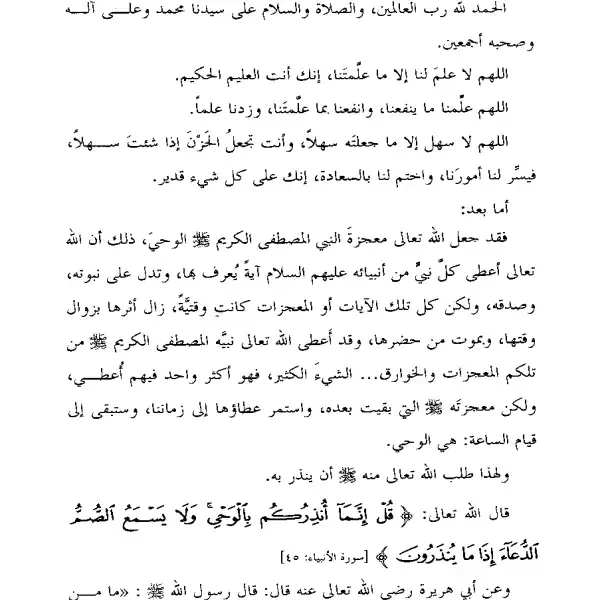 الحمد لله رب العالمين، والصلاة والسلام على سيدنا محمد وعلـــى آلـــه
وصحبه أجمعين.
اللهم لا علمَ لنا إلا ما علَّمتَنا، إنك أنت العليم الحكيم.
اللهم علِّمنا ما ينفعنا، وانفعنا بما علَّمتَنا، وزدنا علماً.
اللهم لا سهل إلا ما جعلتَه سهلاً، وأنت تجعلُ الحَزْنَ إذا شئتَ ســـهلاً،
فيسِّر لنا أمورَنا، واختم لنا بالسعادة، إنك على كل شيء قدير.
أما بعد:
فقد جعل الله تعالى معجزةَ النبي المصطفى الكريم ﷺ الوحيَ، ذلك أن الله
تعالى أعطى كلَّ نبيٍّ من أنبيائه عليهم السلام آيةً يُعرف بها، وتدل على نبوته،
وصدقه، ولكن كل تلك الآيات أو المعجزات كانت وقتيَّةً، زال أثرها بزوال
وقتها، وبموت من حضرها، وقد أَعطى الله تعالى نبيَّه المصطفى الكريم ﷺ من
تلكم المعجزات والخوارق... الشيءَ الكثير، فهو أكثر واحد فيهم أُعطـــي،
ولكن معجزتَه ﷺ التي بقيت بعده، واستمر عطاؤها إلى زماننا، وستبقى إلى
قيام الساعة: هي الوحي.
ولهذا طلب الله تعالى منه ﷺ أن ينذر به.
قال الله تعالى: ﴿ قُلْ إِنَّمَآ أُنذِرُكُم بِٱلْوَحْىِ ۚ وَلَا يَسْمَعُ ٱلصُّمُّ
ٱلدُّعَآءَ إِذَا مَا يُنذَرُونَ ﴾ [سورة الأنبياء: ٤٥]
وعن أبي هريرة رضي الله تعالى عنه قال: قال رسول الله ﷺ : «ما مـــن